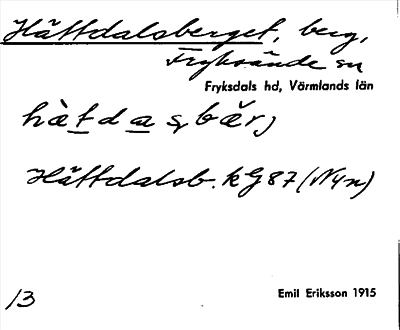 Hättdalsberget, berg,
Fryksände sn
Fryksdals hd, Värmlands län
Hättdalsb. kG87 (Nyn)
13
Emil Eriksson 1915